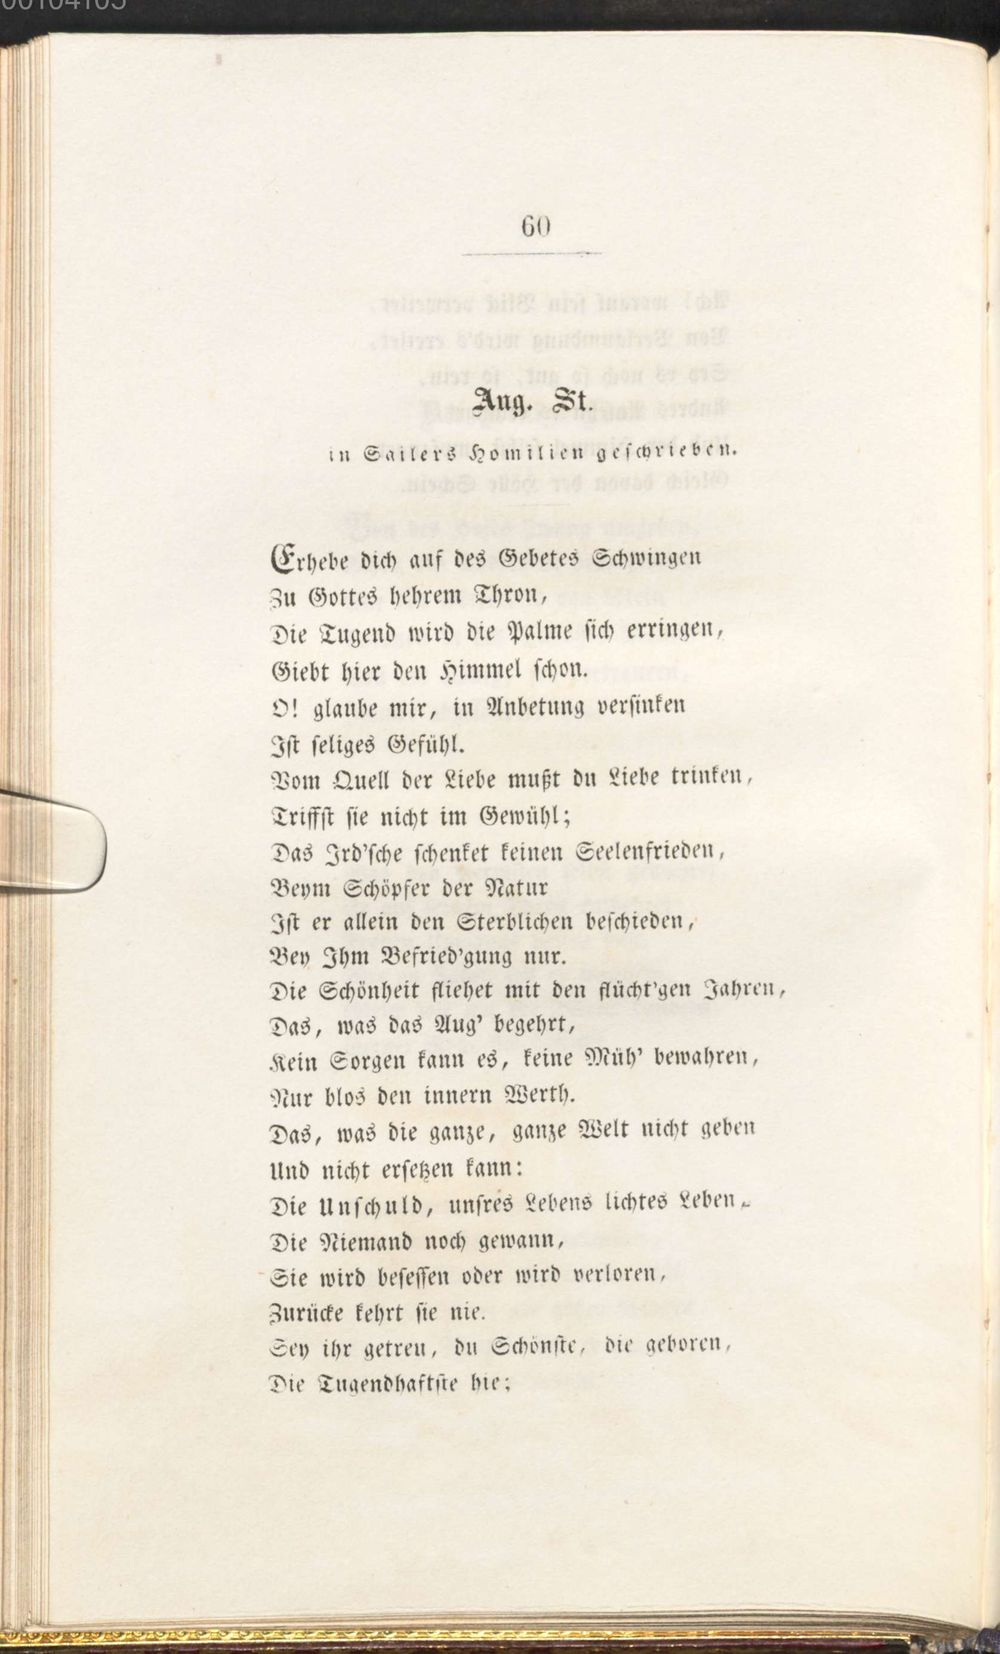 60
Aug. St.
in Sailers Homilien geschrieben.
Erhebe dich auf des Gebetes Schwingen
Zu Gottes hehrem Thron,
Die Tugend wird die Palme sich erringen,
Giebt hier den Himmel schon.
O! glaube mir, in Anbetung versinken
Ist seliges Gefühl.
Vom Quell der Liebe mußt du Liebe trinken,
Triffst sie nicht im Gewühl;
Das Ird'sche schenket keinen Seelenfrieden,
Beym Schöpfer der Natur
Ist er allein den Sterblichen beschieden,
Bey Ihm Befried'gung nur.
Die Schönheit fliehet mit den flücht'gen Jahren,
Das, was das Aug' begehrt,
Kein Sorgen kann es, keine Müh' bewahren,
Nur blos den innern Werth.
Das, was die ganze, ganze Welt nicht geben
Und nicht ersetzen kann:
Die Unschuld, unsres Lebens lichtes Leben,
Die Niemand noch gewann,
Sie wird besessen oder wird verloren,
Zurücke kehrt sie nie.
Sey ihr getreu, du Schönste, die geboren,
Die Tugendhafteste hie;